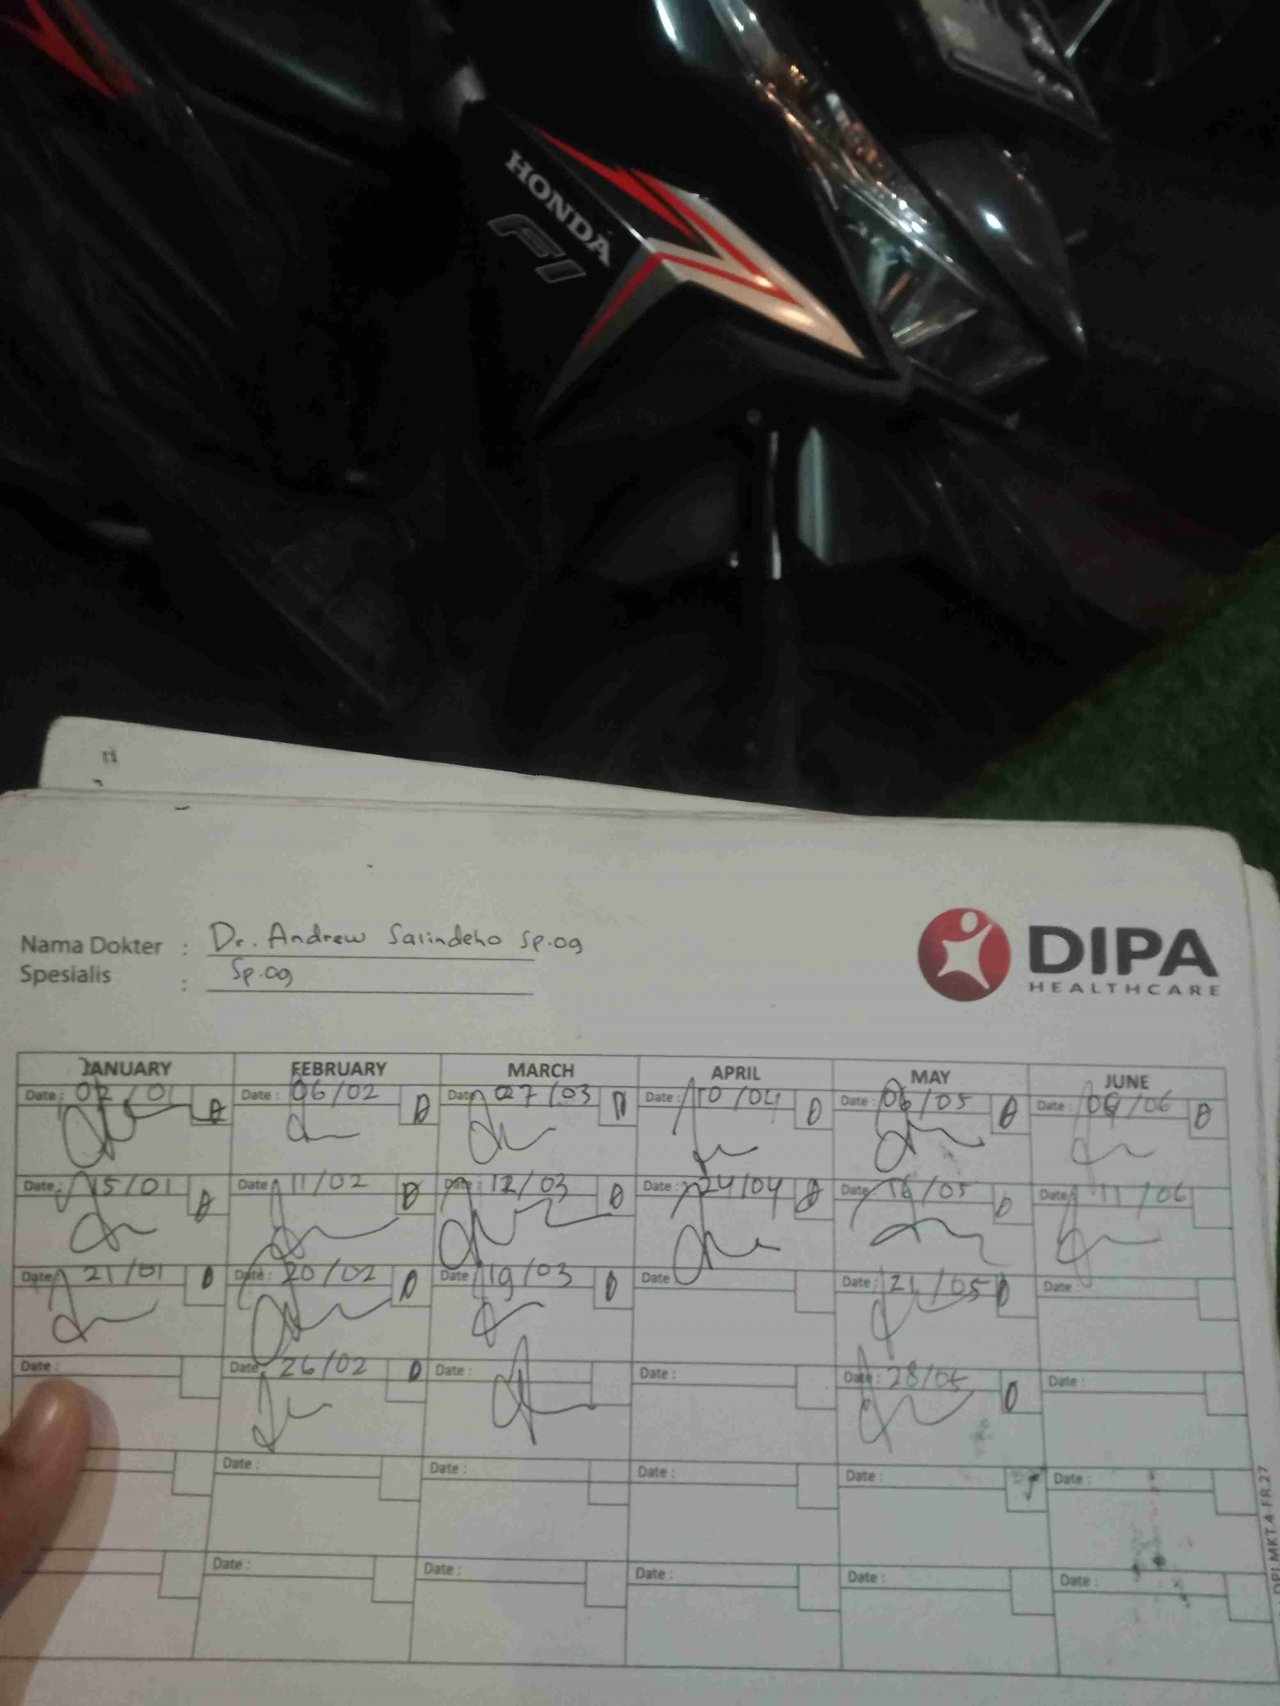 HONDA
FI
Nama Dokter : Dr. Andrew Sarindeho Sp.og
Spesialis : Sp.og
DIPA
HEALTHCARE
JANUARY FEBRUARY MARCH APRIL MAY JUNE
Date : 07/01 Date : 06/02 Date : 07/03 Date : 10/04 Date : 06/05 Date : 09/06
Date : 15/01 Date : 11/02 Date : 12/03 Date : 24/04 Date : 16/05 Date : 11/06
Date : 21/01 Date : 20/02 Date : 19/03 Date : Date : 21/05 Date :
Date : Date : 26/02 Date : Date : Date : 28/05 Date :
Date : Date : Date : Date : Date :
Date : Date : Date : Date : Date :
DPI.MKT.4-FR.27